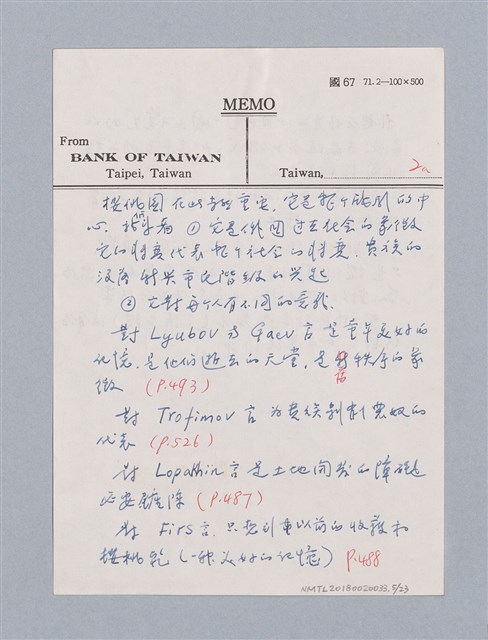 國 67 71.2—100×500
MEMO
From
BANK OF TAIWAN
Taipei, Taiwan
Taiwan,
2a
櫻桃園在此奇的重要,它是整个戲劇的中
心. 指 ① 它是俄國过去社会的象徵
它的轉變代表整个社会的轉變,貴族的
沒落新兴市民階級的兴起
② 它對每个人有不同的意義
對 Lyubov 与 Gaev 言是童年美好的
記憶,是他们逝去的天堂,是舊秩序的象
徵 (P.493)
對 Trofimov 言為貴族剝削農奴的
代表 (P.526)
對 Lopakhin 言是土地開發的障碍
必要剷除 (P.487)
對 Firs 言,只想到車以前的收穫和
櫻桃乾 (一种美好的記憶) P.488
NMTL20180020033.5/23